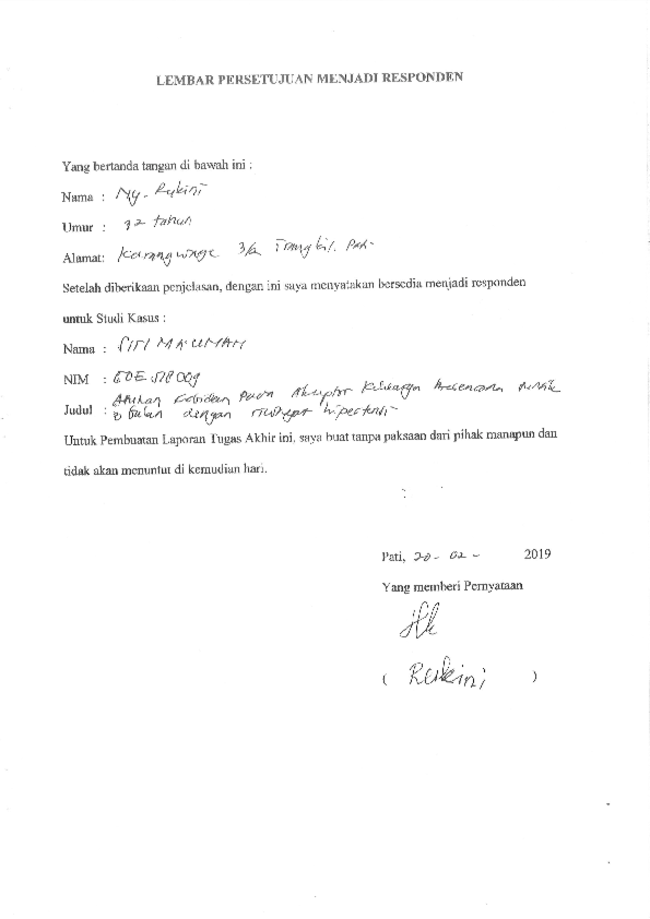 LEMBAR PERSETUJUAN MENJADI RESPONDEN
Yang bertanda tangan di bawah ini :
Nama : Ny. Rukini
Umur : 32 tahun
Alamat: Karangwage 3/2 Trangkil. Pati
Setelah diberikaan penjelasan, dengan ini saya menyatakan bersedia menjadi responden
untuk Studi Kasus :
Nama : SITI MA'CUMAH
NIM :
Judul : Asuhan Kebidan pada Akseptor Keluarga berencana suntik
3 bulan dengan riwayat hipertensi
Untuk Pembuatan Laporan Tugas Akhir ini, saya buat tanpa paksaan dari pihak manapun dan
tidak akan menuntut di kemudian hari.
Pati, 20 - 02 - 2019
Yang memberi Pernyataan
( Rukini )